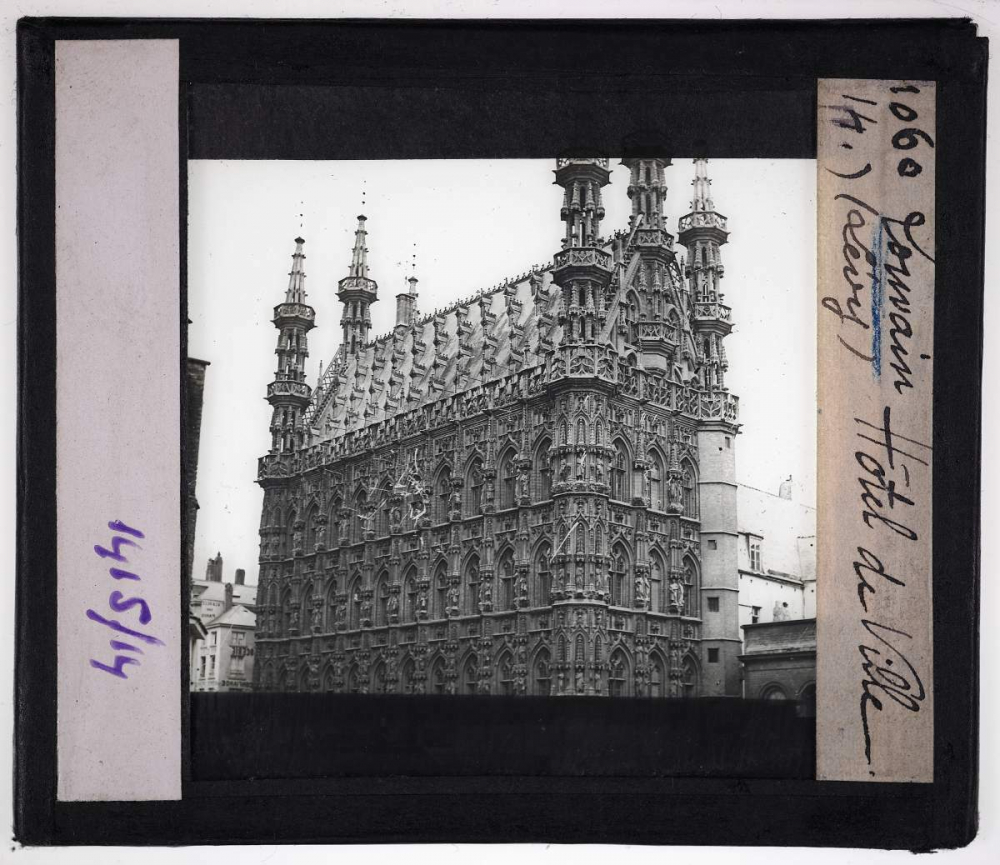 1415/14
1060 Louvain Hôtel de Ville
14.) (Lévy)